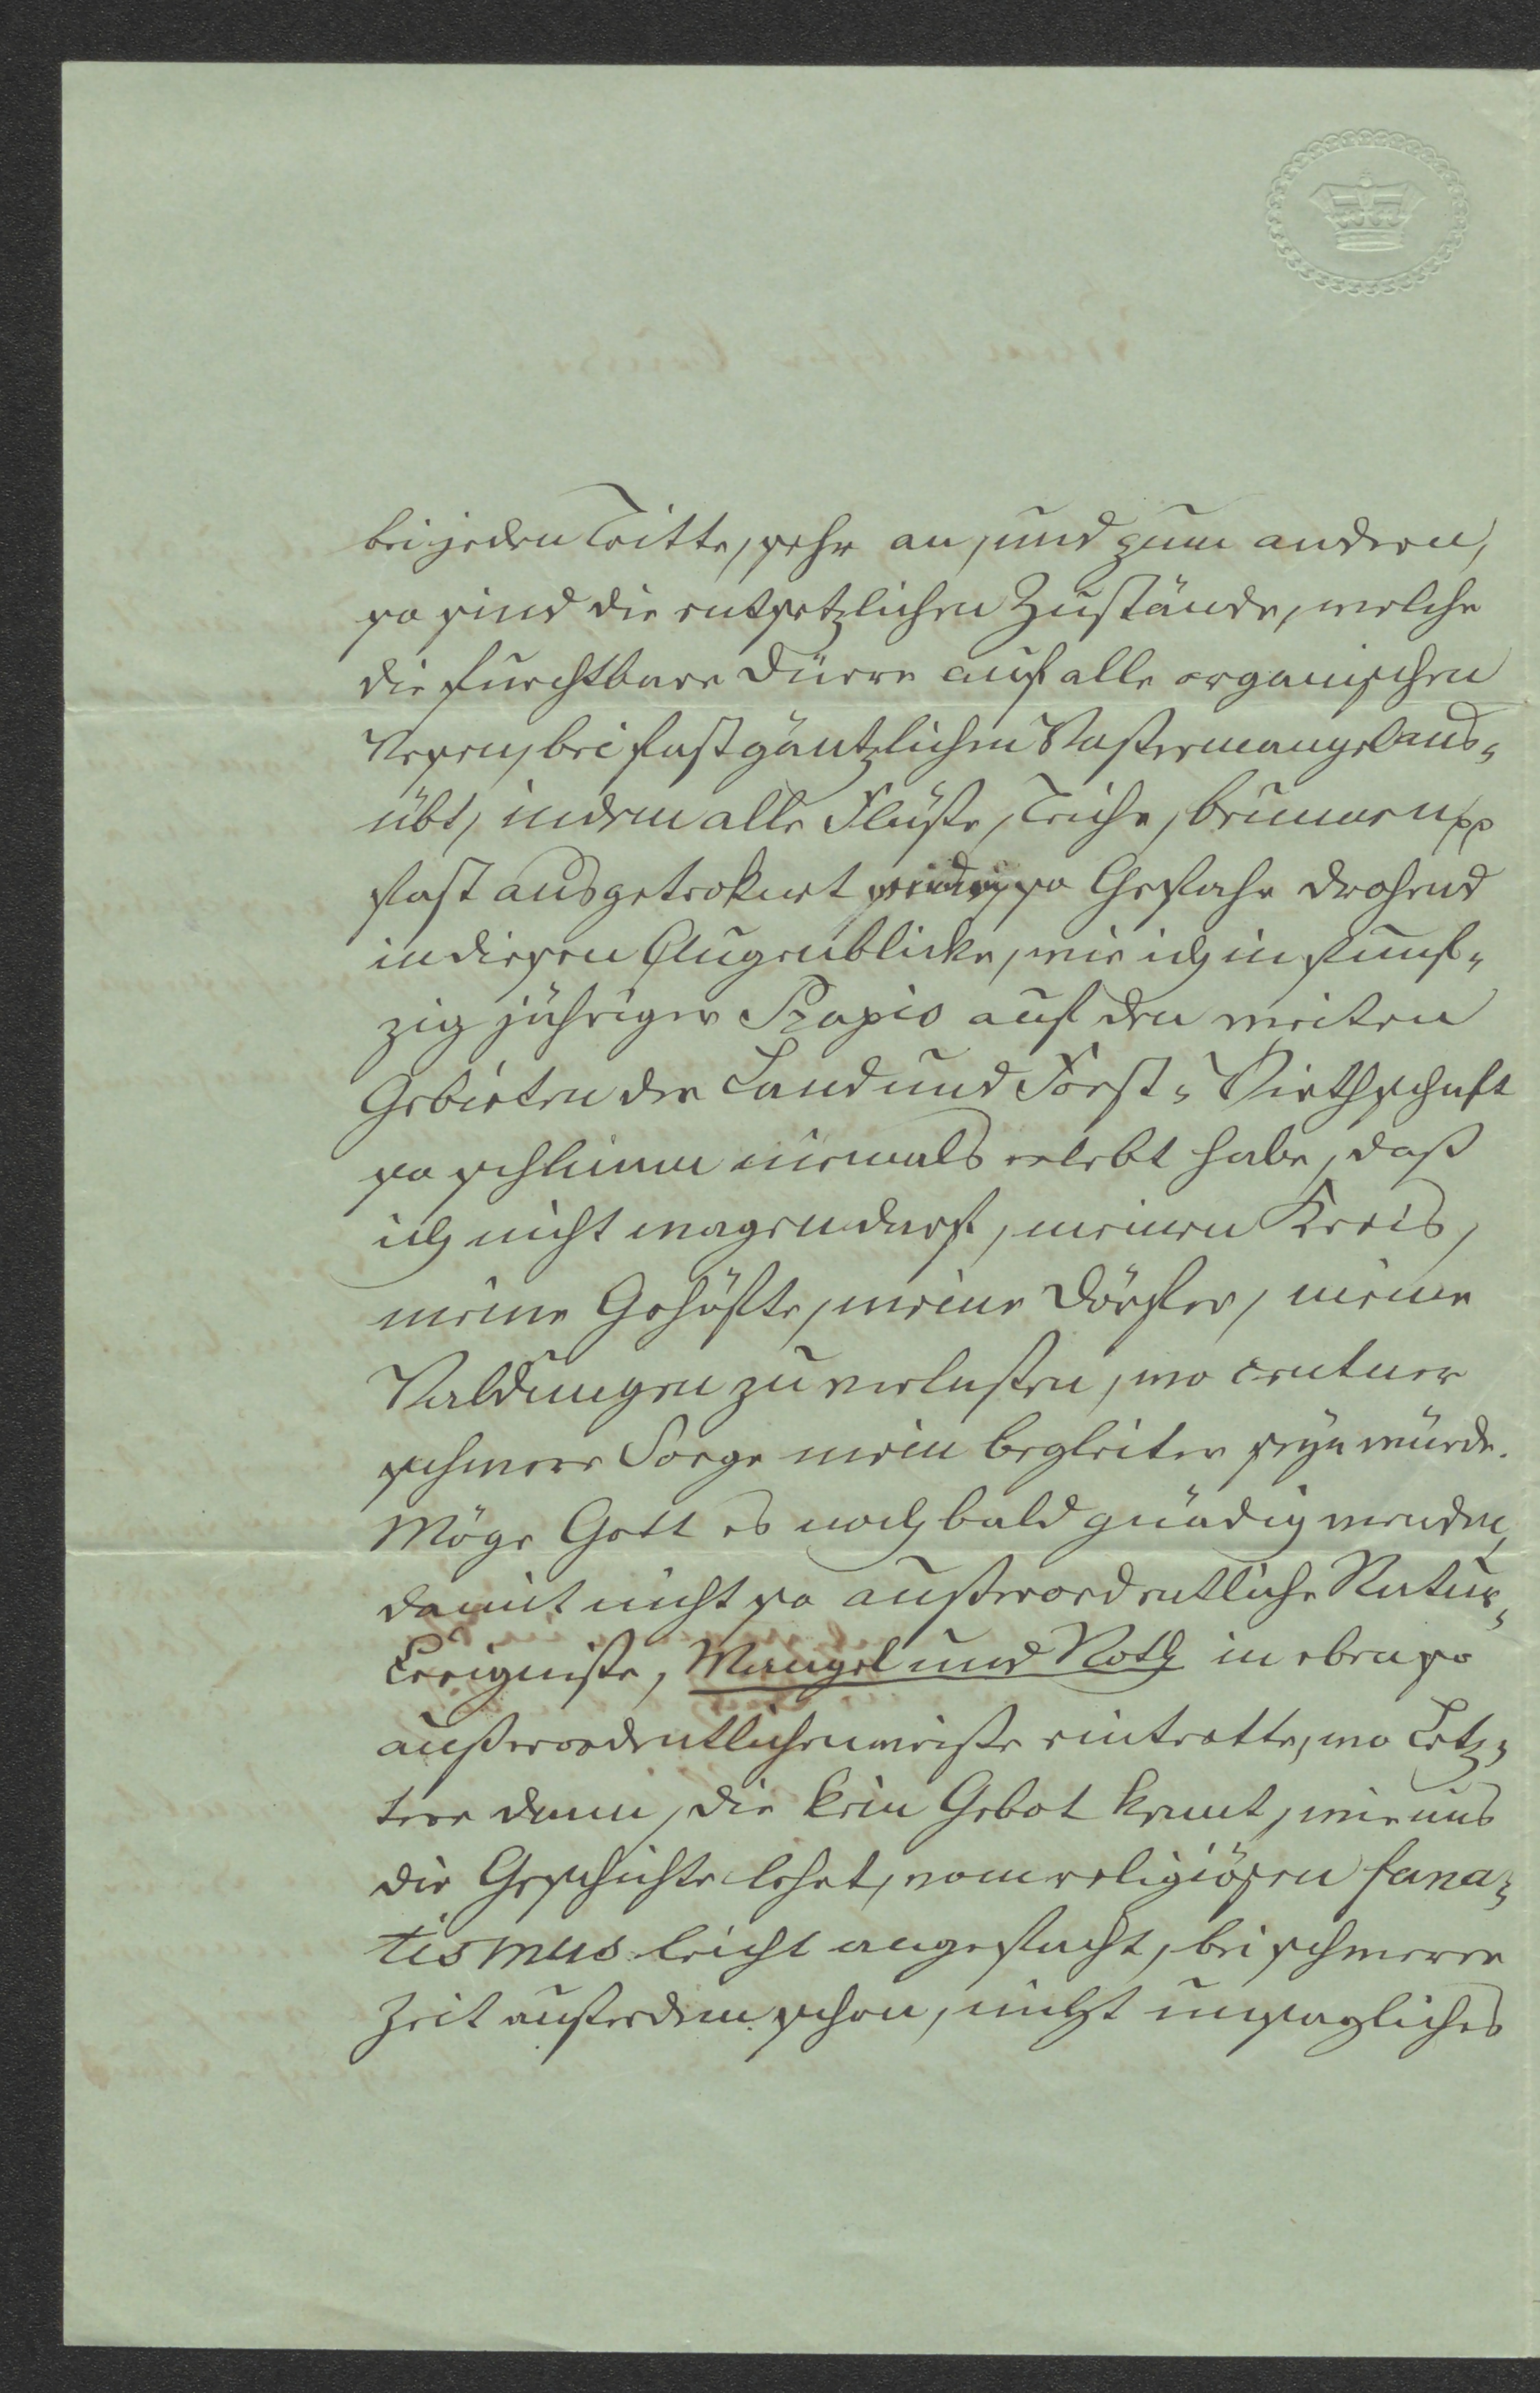 bei jeden Tritte, sehr an, und zum andern,
so sind die entsetzlichen Zustände, welche
die furchtbare Dürre auf alle organischen
Wesen, bei fast gäntzlichen Wassermangel aus¬
übt, indem alle Flüße, Teiche, brunnen pp
fast ausgetroknet sind, so Gefahr drohend
in diesen Augenblicke, wie ich in funf¬
zig jähriger Praxis auf den weiten
Gebieten der Land und Forst¬Wirthschaft
so schlimm niemals erlebt habe, daß
ich nicht wagen darf, meinen Kreis,
meine Gehöfte, meine Dörfer, meine
Waldungen zu verlassen, wo centner
schwere Sorge mein begleiter seyn würde.
Möge Gott es noch bald gnädig wenden,
damit nicht so außerordentliche Natur¬
Ereigniße, Mangel und Noth in eben so
außerordentlichen weise eintratte, wo Letz¬
tere dann, die kein Gebot kennt, wie uns
die Geschichte lehrt, vom religiösen fana¬
tismus leicht angefacht, bei schwerer
Zeit außerdem schon, nicht unsagliches